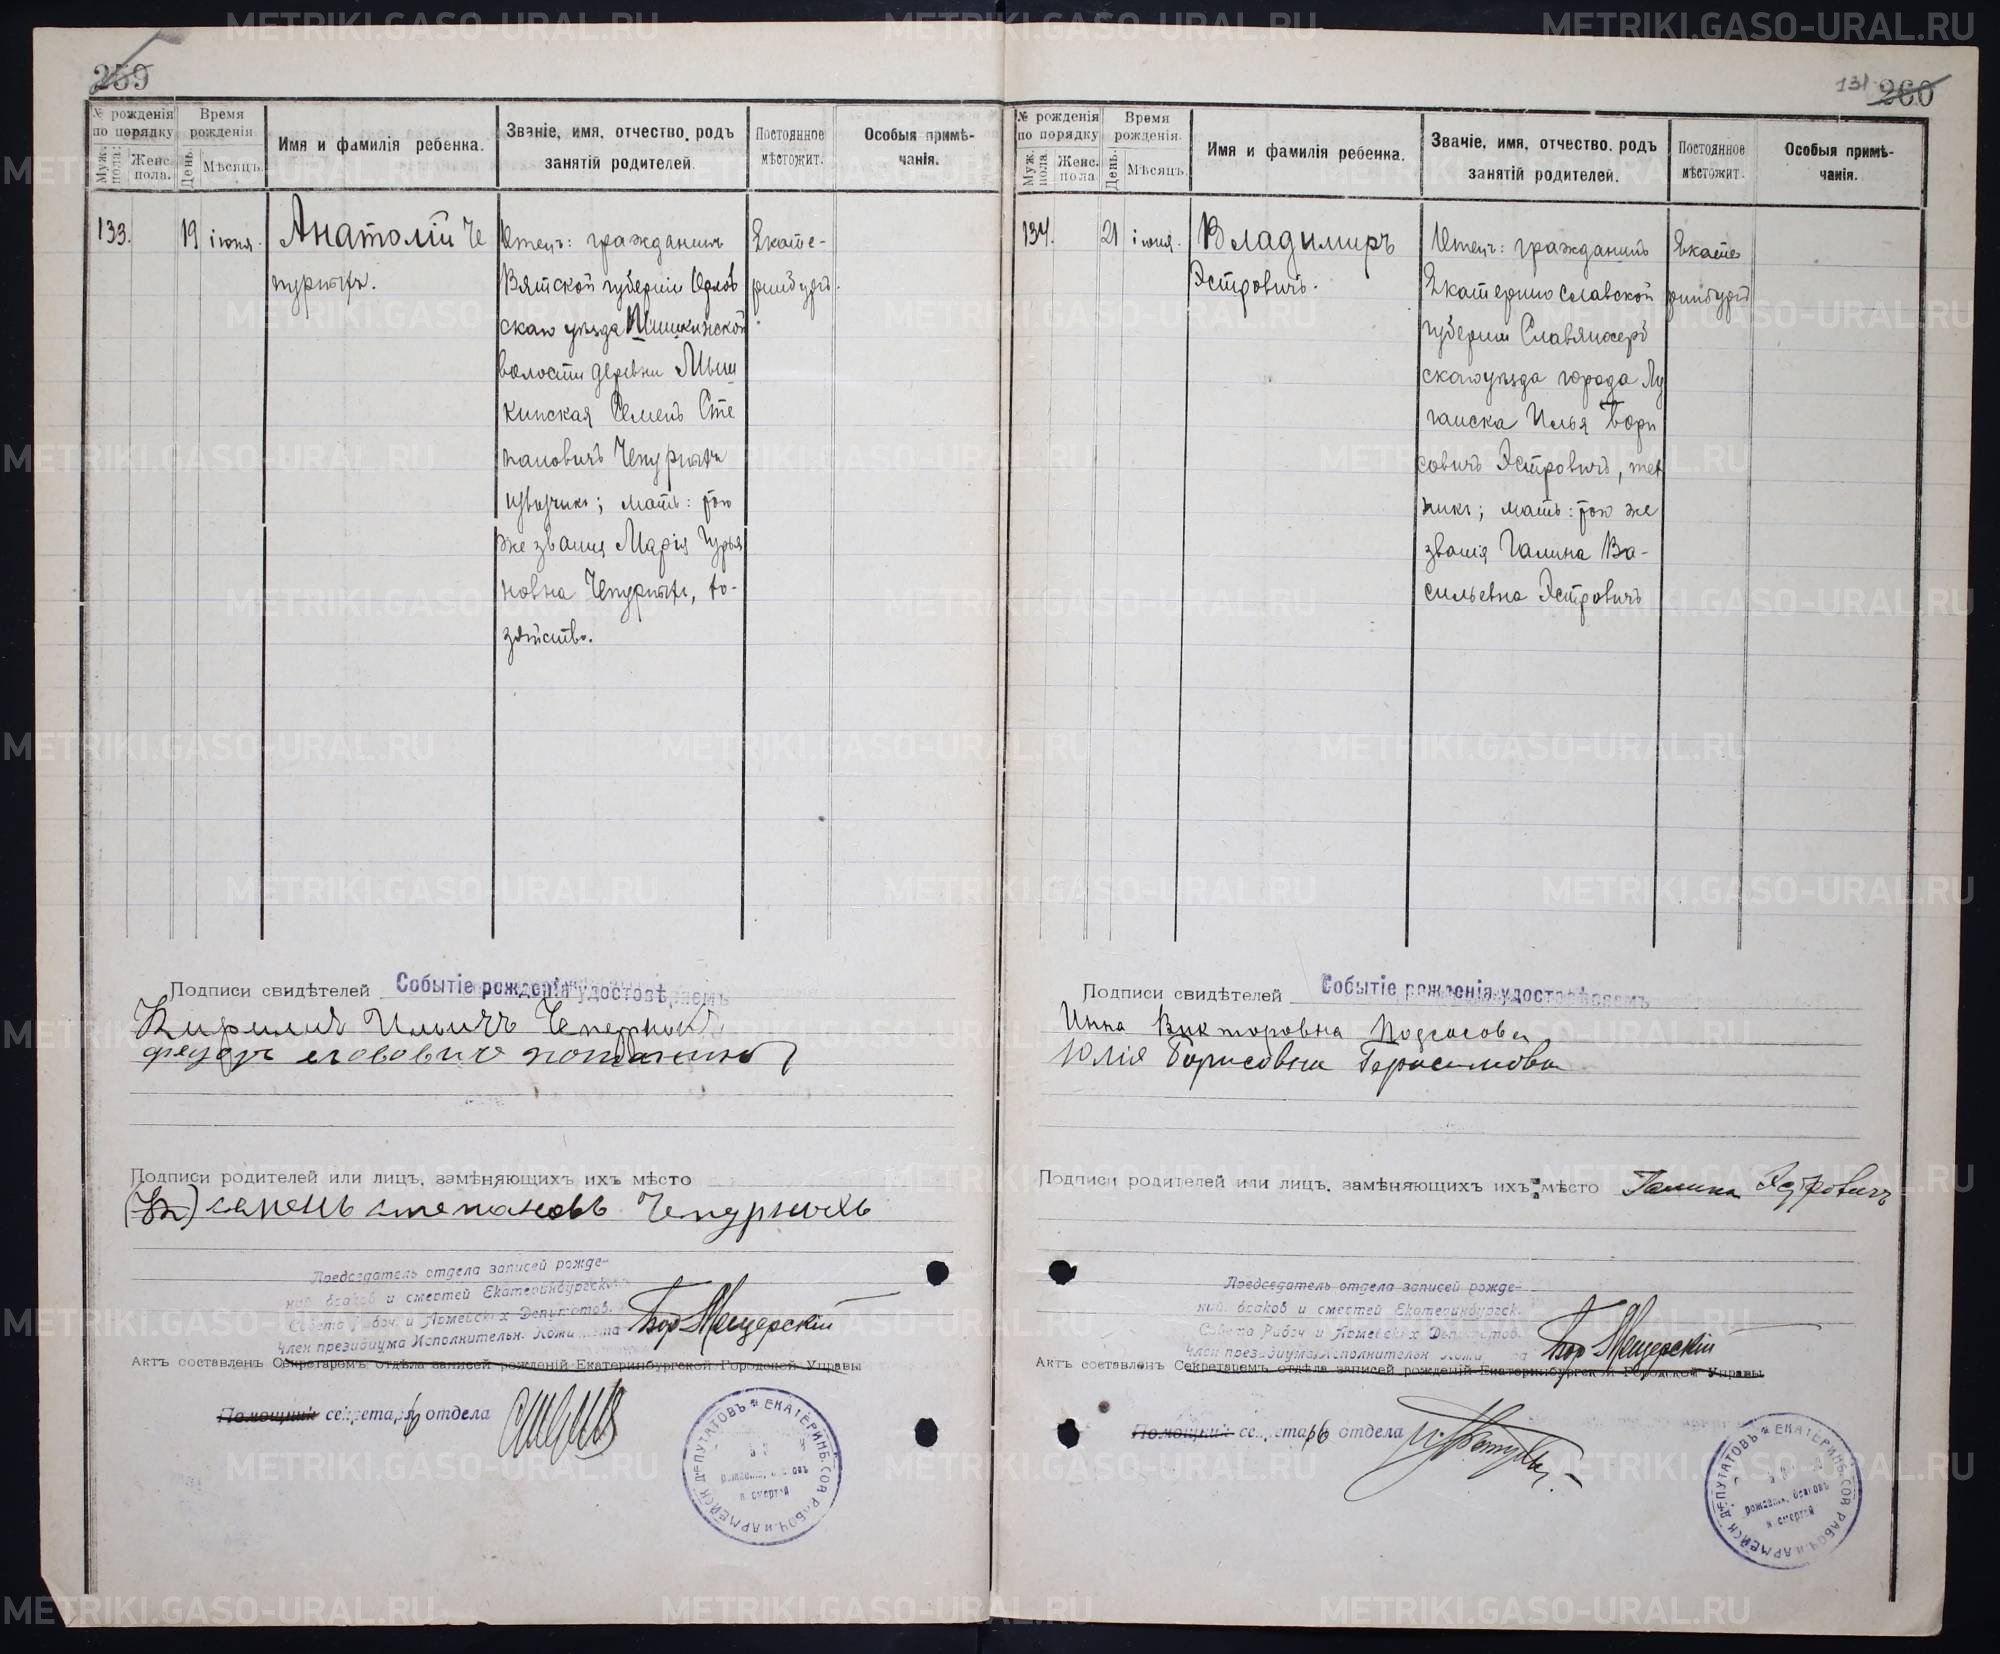 259
№ рожденія по порядку
Муж. пола.
Женс. пола.
Время рожденія
День.
Мѣсяцъ.
Имя и фамилія ребенка.
Званіе, имя, отчество, родъ занятій родителей.
Постоянное мѣстожит.
Особыя примѣчанія.
133.
19
іюня.
Анатолій Че
пурныхъ.
Отецъ: гражданинъ
Вятской губерніи Орлов
скаго уѣзда Шишкинской
волости деревни Мыш
кинская Семенъ Сте
пановичъ Чепурныхъ
извозчикъ; мать: того
же званія Марія Гурья
новна Чепурныхъ, хо-
зяйство.
Екате-
ринбургъ.
Подписи свидѣтелей
Событіе рожденія удостовѣряемъ
Кирилъ Ильичъ
Подписи родителей или лицъ, замѣняющихъ ихъ мѣсто
семенъ степановъ Чепурныхъ
Предсѣдатель отдела записей рожде-
ний, браков и смертей Екатеринбургск.
Совета Рабоч. и Армейских Депутатов.
Член президиума Исполнительн. Комитета
Бор Мещерскій
Актъ составленъ Секретаремъ отдѣла записей рожденій Екатеринбургской Городской Управы
Помощник секретарь отдела
ЕКАТЕРИНБ. СОВ. РАБОЧ. и АРМЕЙСК. ДЕПУТАТОВЪ
рожденій, браковъ
и смертей
131
260
№ рожденія по порядку
Муж. пола
Женс. пола
Время рожденія.
День.
Мѣсяцъ.
Имя и фамилія ребенка.
Званіе, имя, отчество, родъ занятій родителей.
Постоянное мѣстожит.
Особыя примѣчанія.
134.
21
іюня.
Владимиръ
Эстровичъ.
Отецъ: гражданинъ
Екатеринославской
губерніи Славяносерб
скаго уѣзда города Лу
ганска Илья Бори
совичъ Эстровичъ, тех
никъ; мать: того же
званія Галина Ва-
сильевна Эстровичъ
Екате
ринбургъ
Подписи свидѣтелей
Событіе рожденія удостовѣряемъ
Инна Викторовна
Юлія Борисовна Герасимова
Подписи родителей или лицъ, замѣняющихъ ихъ мѣсто Галина Эстровичъ
Предсѣдатель отдела записей рожде-
ний, браков и смертей Екатеринбургск.
Совета Рабоч и Армейских Депутатов.
Член президиума Исполнительн Комитета
Бор Мещерскій
Актъ составленъ Секретаремъ отдѣла записей рожденій Екатеринбургской Городской Управы
Помощник секретарь отдела
ЕКАТЕРИНБ. СОВ. РАБОЧ. и АРМЕЙСК. ДЕПУТАТОВЪ
рожденій, браковъ
и смертей
METRIKI.GASO-URAL.RU